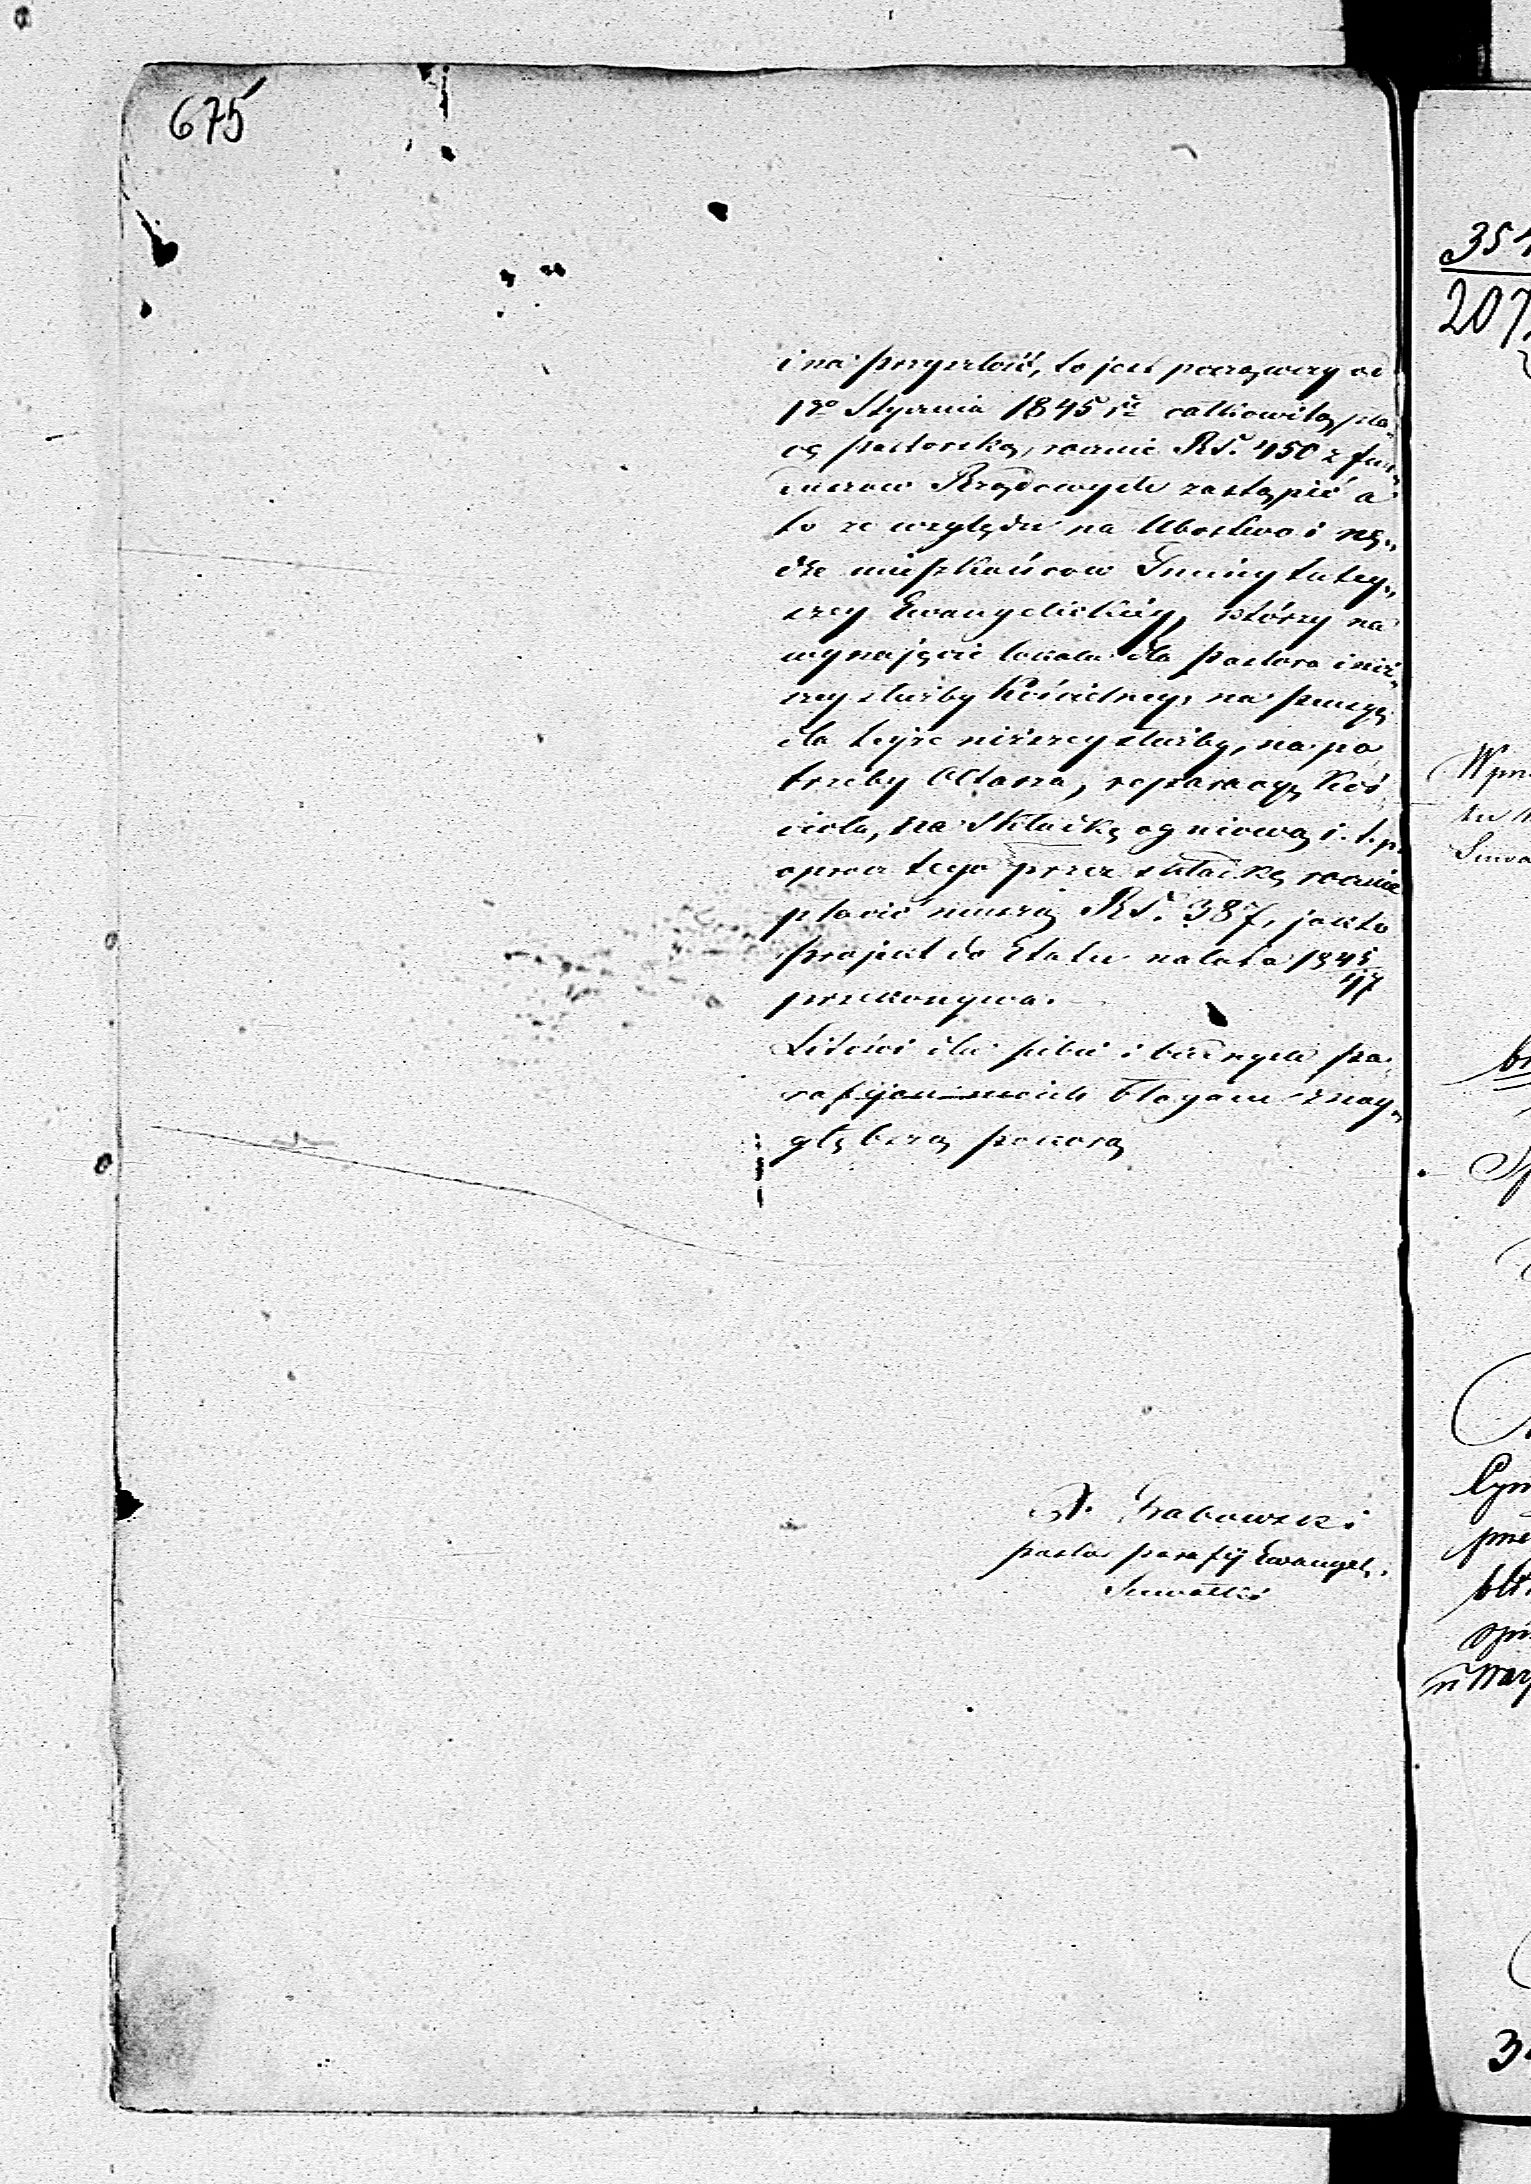 675
i na przyszłość, to jest począwszy od
1go Stycznia 1845 r. całkowitą pła„
cę pastorską, rocznie RS. 450 z fun„
duszow Rządowych zastąpić a
to ze względu na Ubostwo i nę„
dze mieszkańcow Gminy tutey„
szey Ewangelickiey, którzy na
wynajęcie lokalu dla pastora i niż„
szey służby Kościelney, na pensyę
dla teyże niższey służby, na po„
trzeby Ołtarza, reparacyę Koś„
cioła, na Składkę ogniową i. t. p.
oprocz tego przez składkę rocznie
płacić muszą RS. 387, jak to
projekt do Etatu na lata 1845/47
przekonywa.
Litości dla siebie i biednych pa„
rafijan moich błagam z nay„
głębszą pokorą
Grabowski
pastor parafij Ewangel.
Suwałki
354
207